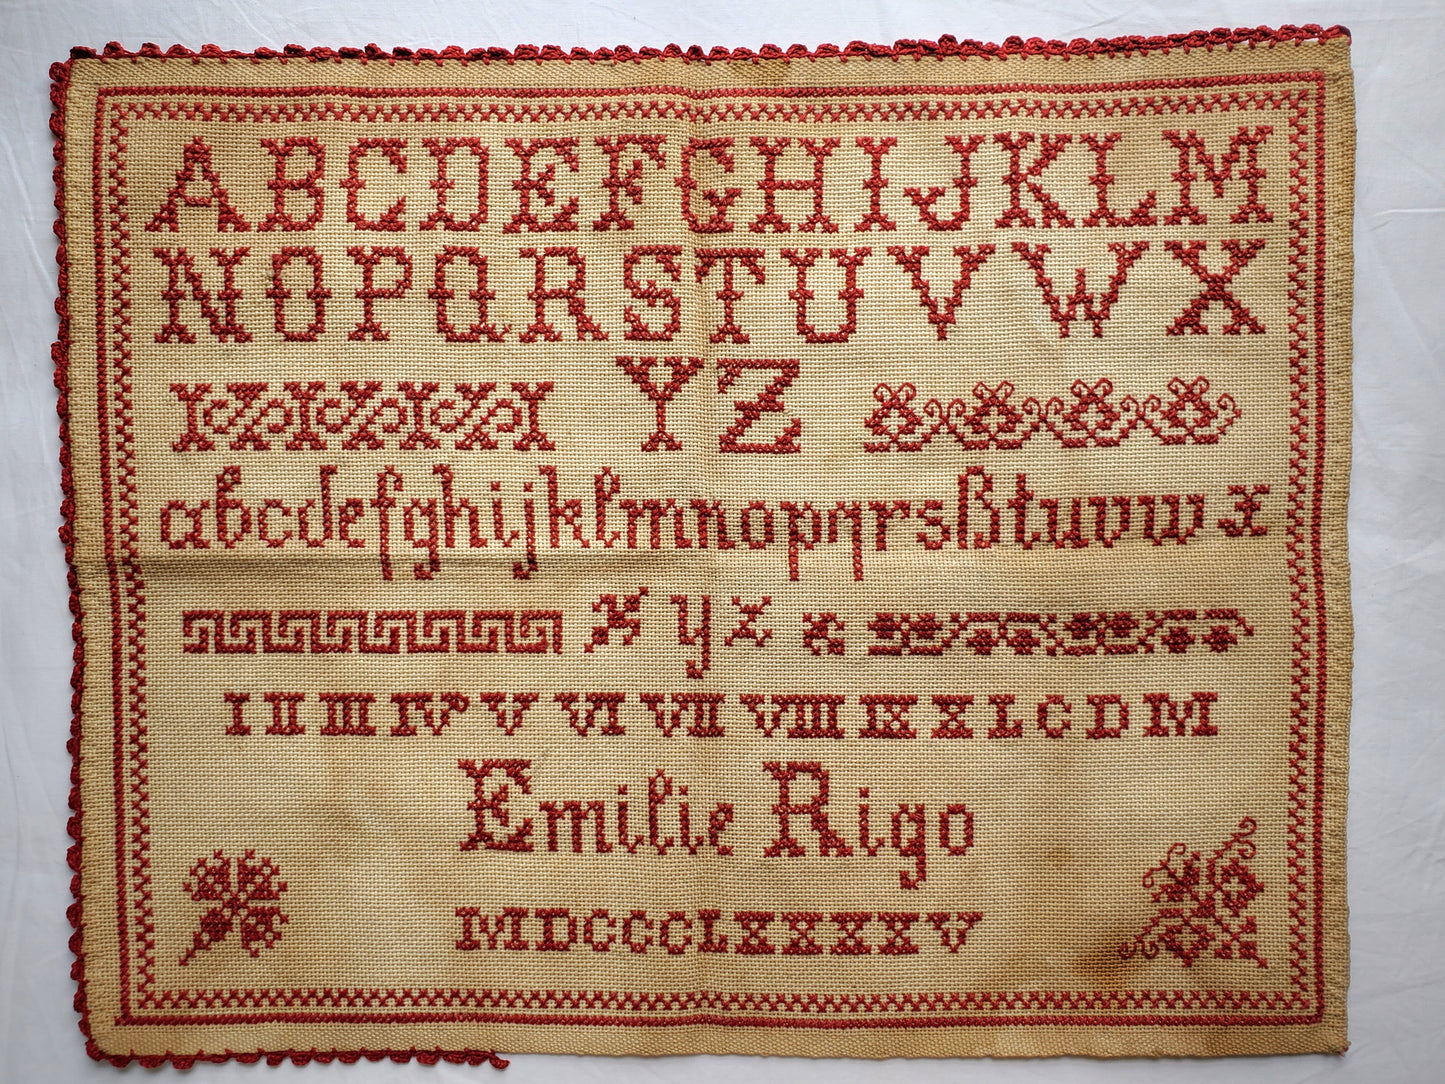 ABCDEFGHIJKLM
NOPQRSTUVWX
YZ
abcdefghijklmnopqrsßtuvwx
yz
I II III IV V VI VII VIII IX X L C D M
Emilie Rigo
MDCCCLXXXXV